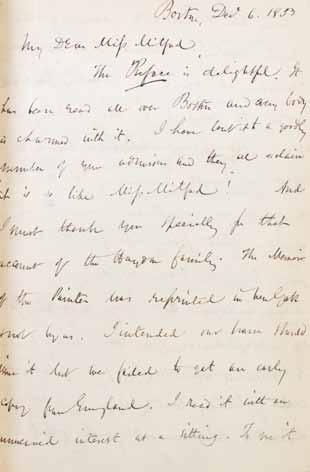 Boston, Dec 6. 1853
My Dear Miss Mitford,
The Preface is delightful. It
has been read all over Boston and every body
is charmed with it. I have lent it to a goodly
number of your admirers and they all exclaim
it is so like Miss Mitford! And
I must thank you specially for that
account of the Haydon family. The Memoir
of the Painter was reprinted in New York
not by us. I intended our house should
it but we failed to get an early
copy from England. I read it with an
interest at a sitting. To me it